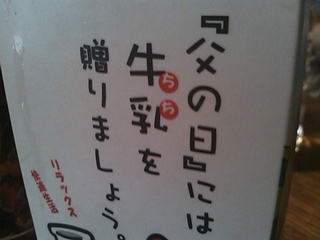 『父の日』には
牛乳を
ちち
贈りましょう。
リラックス